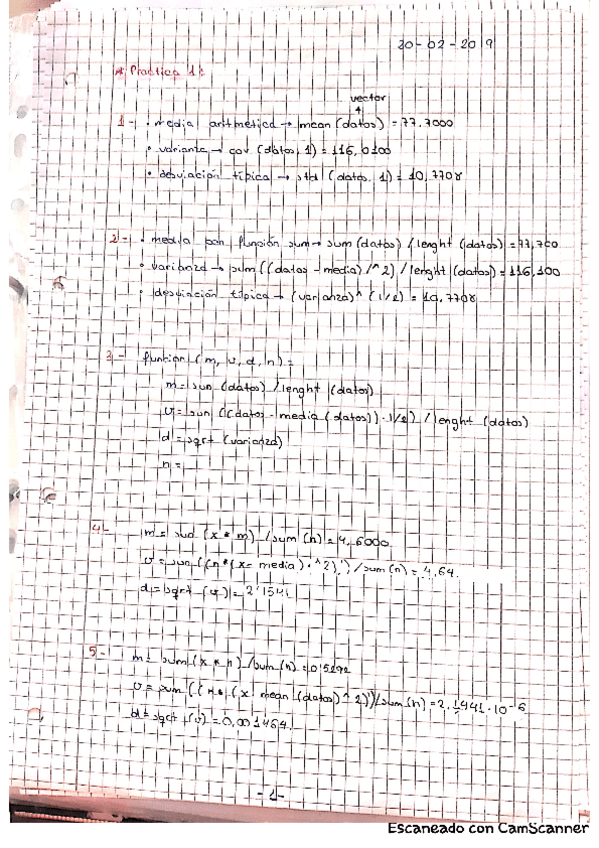 20-02-2019
* Practica 1:
vector
1- • media aritmetica → mean (datos) = 77,7000
• varianza → cov (datos, 1) = 116,0100
• desviación típica → std (datos, 1) = 10,7708
2- • media con función sum → sum (datos) / lenght (datos) = 77,700
• varianza → sum ((datos - media) .^2) / lenght (datos) = 116,100
• desviación típica → (varianza)^(1/2) = 10,7708
3- funcion (m, v, d, n) =
m = sum (datos) / lenght (datos)
v = sum ((datos - media (datos)) / lenght (datos)
d = sqrt (varianza)
n =
4- m = sum (x * m) / sum (n) = 4,6000
v = sum ((n * (x - media) .^2)) / sum (n) = 4,64.
d = sqrt (v) = 2'1541
5- m = sum (x * n) / sum (n) = 0'5292
v = sum ((n * (x mean (datos)^2)) / sum (n) = 2,1441 · 10^-6
d = sqrt (v) = 0,001464.
-1-
Escaneado con CamScanner